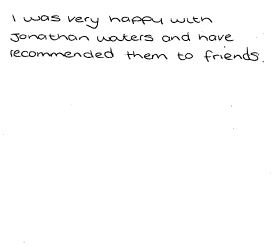 I was very happy with
Jonathan waters and have
recommended them to friends.